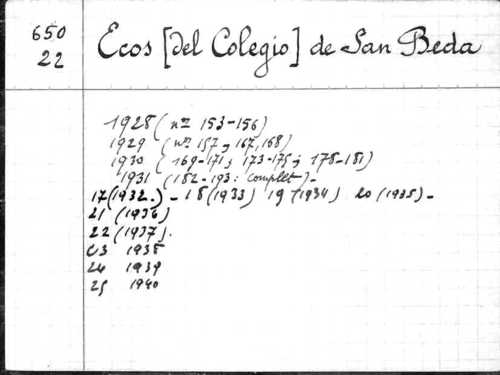 650
22
Ecos [del Colegio] de San Beda
1928 (nos 153-156)
1929 (nos 157, 167, 168)
1930 (169-171; 173-175; 178-181)
1931 (182-193: complet)-
17(1932.) - 18(1933) 19 (1934) 20 (1935)-
21 (1936)
22 (1937).
23 1938
24 1939
25 1940